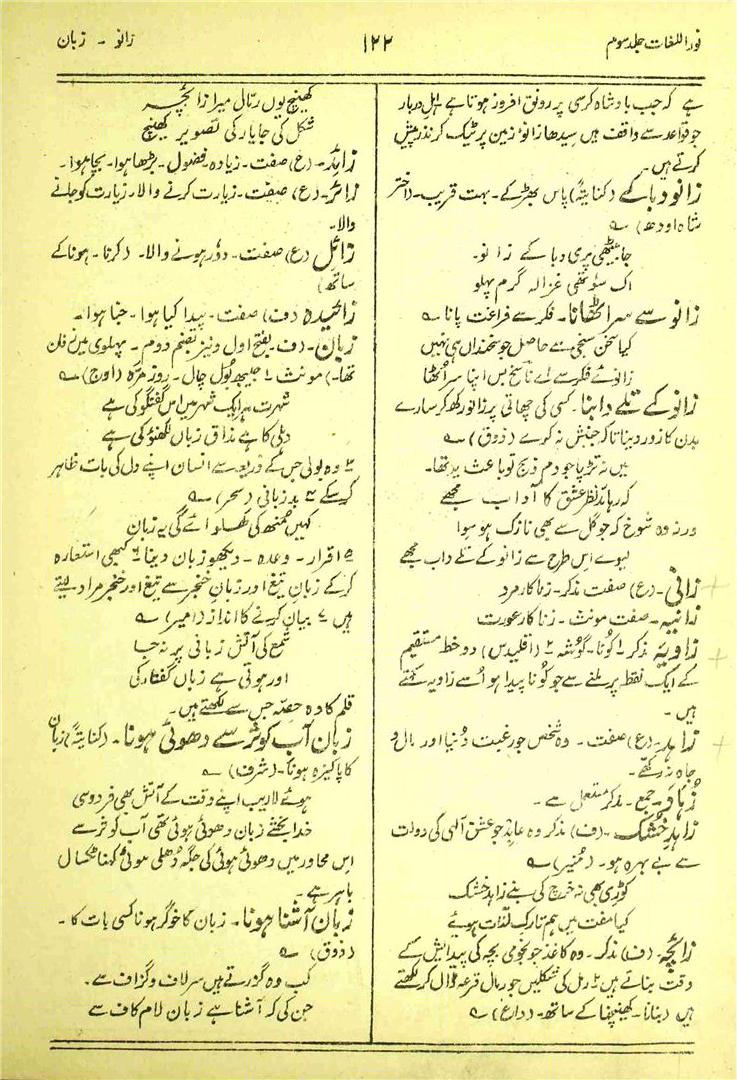 نور اللغات جلد سوم
۱۲۲
زانو - زبان
ہے کہ جب بادشاہ کرسی پر رونق افروز ہوتا ہے اہل دربار
جو قواعد سے واقف ہیں سیدھا زانو زمین پر ٹیک کر نذر پیش
کرتے ہیں۔
زانو دبا کے (کنایتہً) پاس بھڑ کے۔ بہت قریب۔ (اختر
شاہ اودھ) ؎
جا بیٹھی پری دبا کے زانو۔
اک سو تھی غزالہ گرم پہلو
زانو سے سر اٹھانا۔ فکر سے فراغت پانا ؎
کیا سخن سنجی سے حاصل جو سخنداں ہی نہیں
زانوئے فکر سے اے ناسخ بس اپنا سر اُٹھا
زانو کے تلے دابنا۔ کسی کی چھاتی پر زانو رکھ کر سارے
بدن کا زور دینا تاکہ جنبش نہ کرے (ذوق) ؎
میں نہ تڑپا جو دم ذبح تو باعث یہ تھا۔
کہ رہا مدّ نظر عشق کا آداب مجھے
ورنہ وہ شوخ کہ جو گل سے بھی نازک ہو سوا
لیوے اس طرح سے زانو کے تلے داب مجھے
زانی۔ (ع) صفت مذکر۔ زنا کار مرد
زانیہ۔ صفت مونث۔ زنا کار عورت
زاویہ مذکر ۱ کونا۔ گوشہ ۲ (اقلیدس) دو خط مستقیم
کے ایک نقطہ پر ملنے سے جو کونا پیدا ہو اُسے زاویہ کہتے
ہیں۔
زاہد۔ (ع) صفت۔ وہ شخص جو رغبت دُنیا اور مال و
جاہ نہ رکھے۔
زُہاد۔ جمع۔ مذکر مستعمل ہے۔
زاہدِ خشک۔ (ف) مذکر وہ عابد جو عشق الٰہی کی دولت
سے بے بہرہ ہو۔ (منیر) ؎
کوڑی بھی نہ خرچ کی بنے زاہد خشک
کیا مفت میں ہم تارک لذات ہوئے
زائچہ۔ (ف) مذکر۔ وہ کاغذ جو نجومی بچہ کی پیدائش کے
وقت بناتے ہیں ۲ رمل کی شکلیں جو رمال قرعہ ڈال کر لکھتے
ہیں (بنانا۔ کھینچنا کے ساتھ۔ (داغ) ؎
کھینچ یوں رمّال میرا زائچہ
شکل کی جا یار کی تصویر کھینچ
زائد۔ (ع) صفت۔ زیادہ۔ فضول۔ بڑھا ہوا۔ بچا ہوا۔
زائر۔ (ع) صفت۔ زیارت کرنے والا۔ زیارت کو جانے
والا۔
زائل (ع) صفت۔ دور ہونے والا۔ (کرنا۔ ہونا کے
ساتھ)
زائیدہ (ف) صفت۔ پیدا کیا ہوا۔ جنا ہوا۔
زبان۔ (ف۔ بفتح اول و نیز بضم دوم۔ پہلوی میں زفان
تھا۔) مونث ۱ جیبھ بول چال۔ روزمرّہ (اوج) ؎
شہرت ہر ایک شہر میں اس گفتگو کی ہے
دلی کا ہے مذاق زباں لکھنؤ کی ہے
۳ وہ بولی جس کے ذریعہ سے انسان اپنے دل کی بات ظاہر
کرسکے ۴ بد زبانی (سحر) ؎
کہیں منھ کی کھلوائے گی یہ زبان
۵ اقرار۔ وعدہ۔ دیکھو زبان دینا ۶ کبھی استعارہ
کر کے زبان تیغ اور زبان خنجر سے تیغ اور خنجر مراد لیتے
ہیں ۷ بیان کرنے کا انداز (امیر) ؎
شمع کی آتش زبانی پر نہ جا
اور ہوتی ہے زباں گفتار کی
قلم کا وہ حصّہ جس سے لکھتے ہیں۔
زبان آب کوثر سے دھوئی ہونا۔ (کنایتہً) زبان
کا پاکیزہ ہونا۔ (شرف) ؎
ہوئے لاریب اپنے وقت کے آتش بھی فردوسی
خدا بخشے زبان دھوئی ہوئی تھی آب کوثر سے
اس محاور میں دھوئی ہوئی کی جگہ دُھلی ہوئی کہنا ٹکسال
باہر ہے۔
زبان آشنا ہونا۔ زبان کا خوگر ہونا کسی بات کا۔
(ذوق) ؎
کب وہ گزرتے ہیں سر لاف و گزاف سے۔
جن کی کہ آشنا ہے زبان لام کاف سے